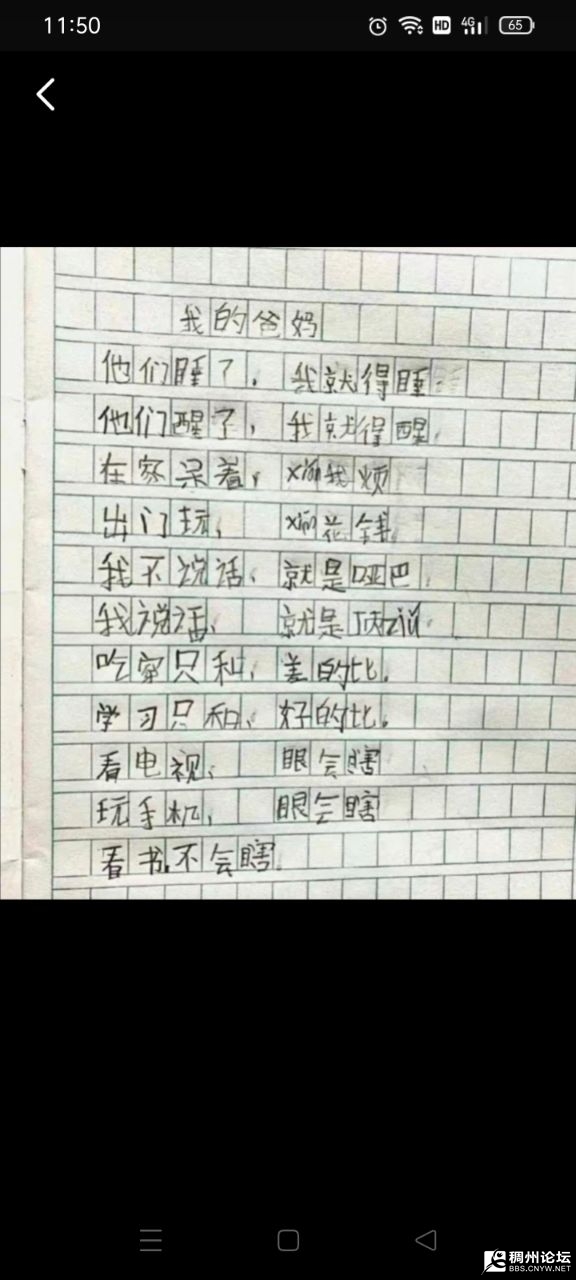 11:50
HD 4G 65
我的爸妈
他们睡了，我就得睡
他们醒了，我就得醒
在家呆着，xian我烦
出门玩，xian花钱
我不说话，就是哑巴
我说话，就是顶zui
吃穿只和，差的比。
学习只和，好的比。
看电视，眼会瞎
玩手机，眼会瞎
看书不会瞎.
稠州论坛
BBS.CNYW.NET